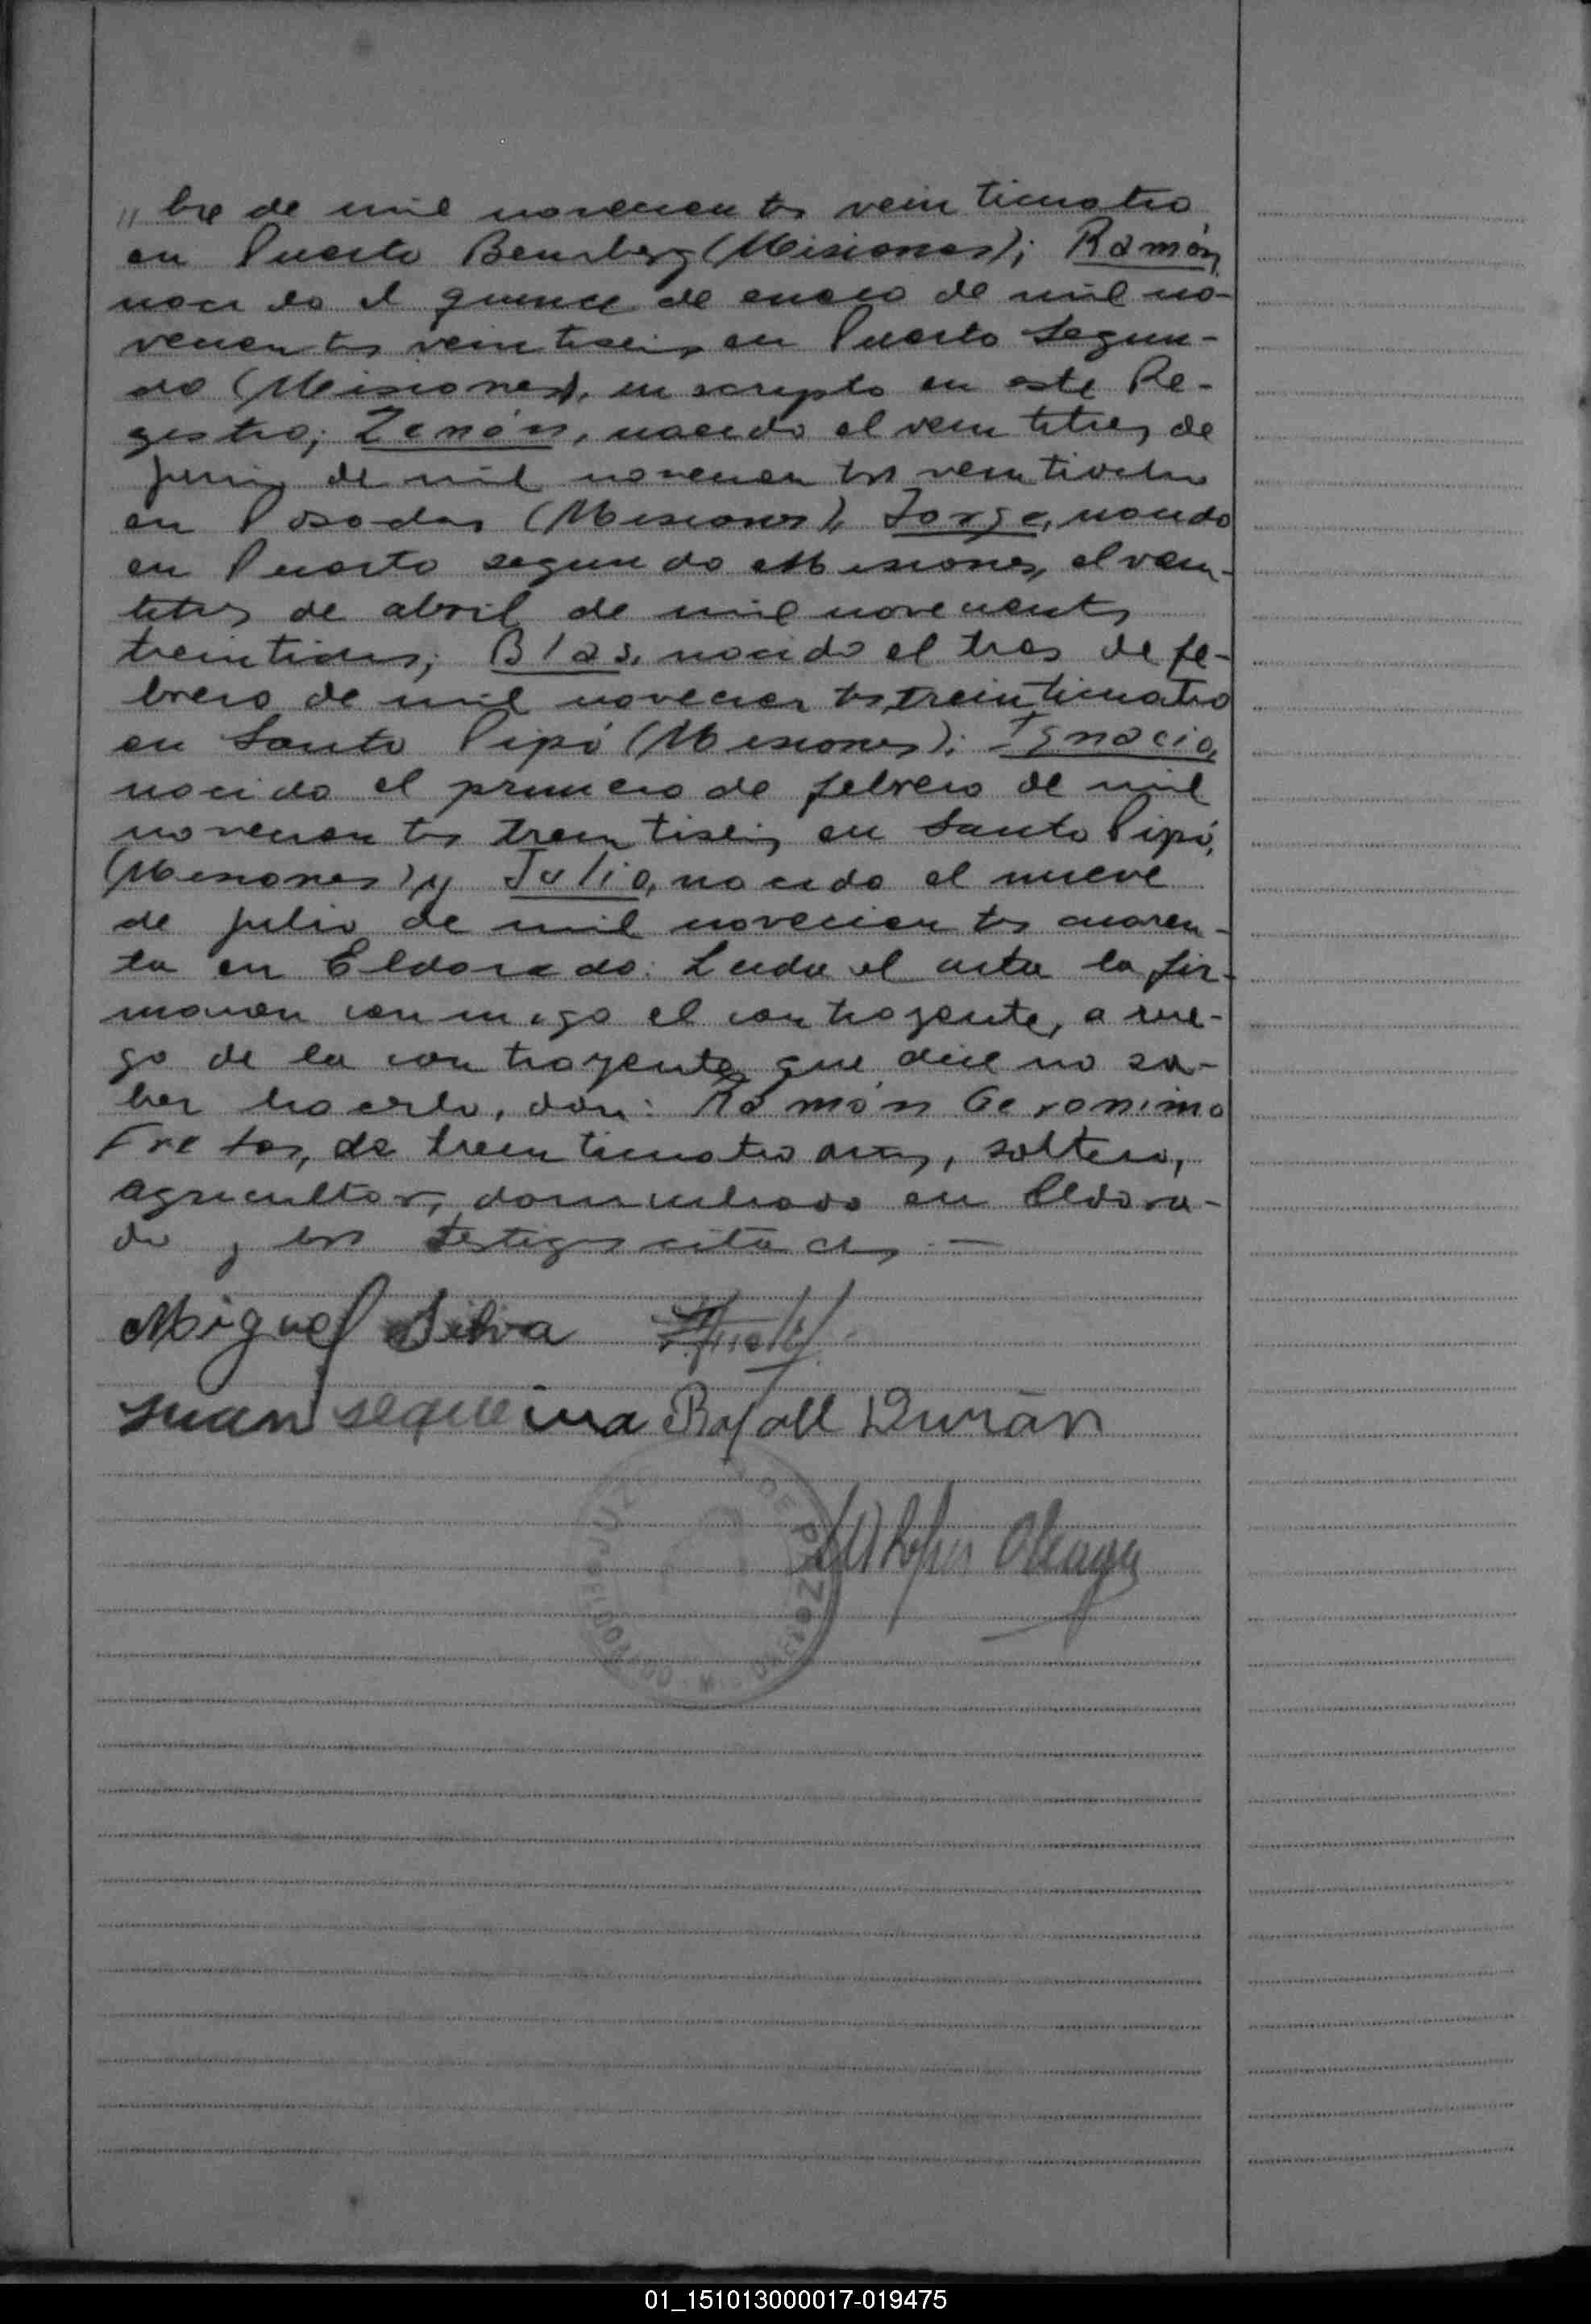 " bre de mil novecientos veinticuatro
en Puerto Bemberg (Misiones); Ramón,
nacido el quince de enero de mil no-
vecientos veintiseis en Puerto Segun-
do (Misiones), inscripto en este Re-
gistro; Zenón, nacido el veintitres de
junio de mil novecientos veintiocho
en Posadas (Misiones), Jorge, nacido
en Puerto segundo Misiones, el vein-
titres de abril de mil novecientos
treintidos; Blas, nacido el tres de fe-
brero de mil novecientos treinticuatro
en Santo Pipó (Misiones); Ignacio,
nacido el primero de febrero de mil
novecientos treintiseis en Santo Pipó,
(Misiones) y Julio, nacido el nueve
de julio de mil novecientos cuaren-
ta en Eldorado. Leida el acta la fir-
maron conmigo el contrayente, a rue-
go de la contrayente que dice no sa-
ber hacerlo, don: Ramón Geronimo
Fretes, de treinticuatro años, soltero,
agricultor, domiciliado en Eldora-
do y los testigos citados.—
Miguel Silva
Juan sequeira Rafael Durán
JUZ DE PAZ
ELDORADO
01_151013000017-019475